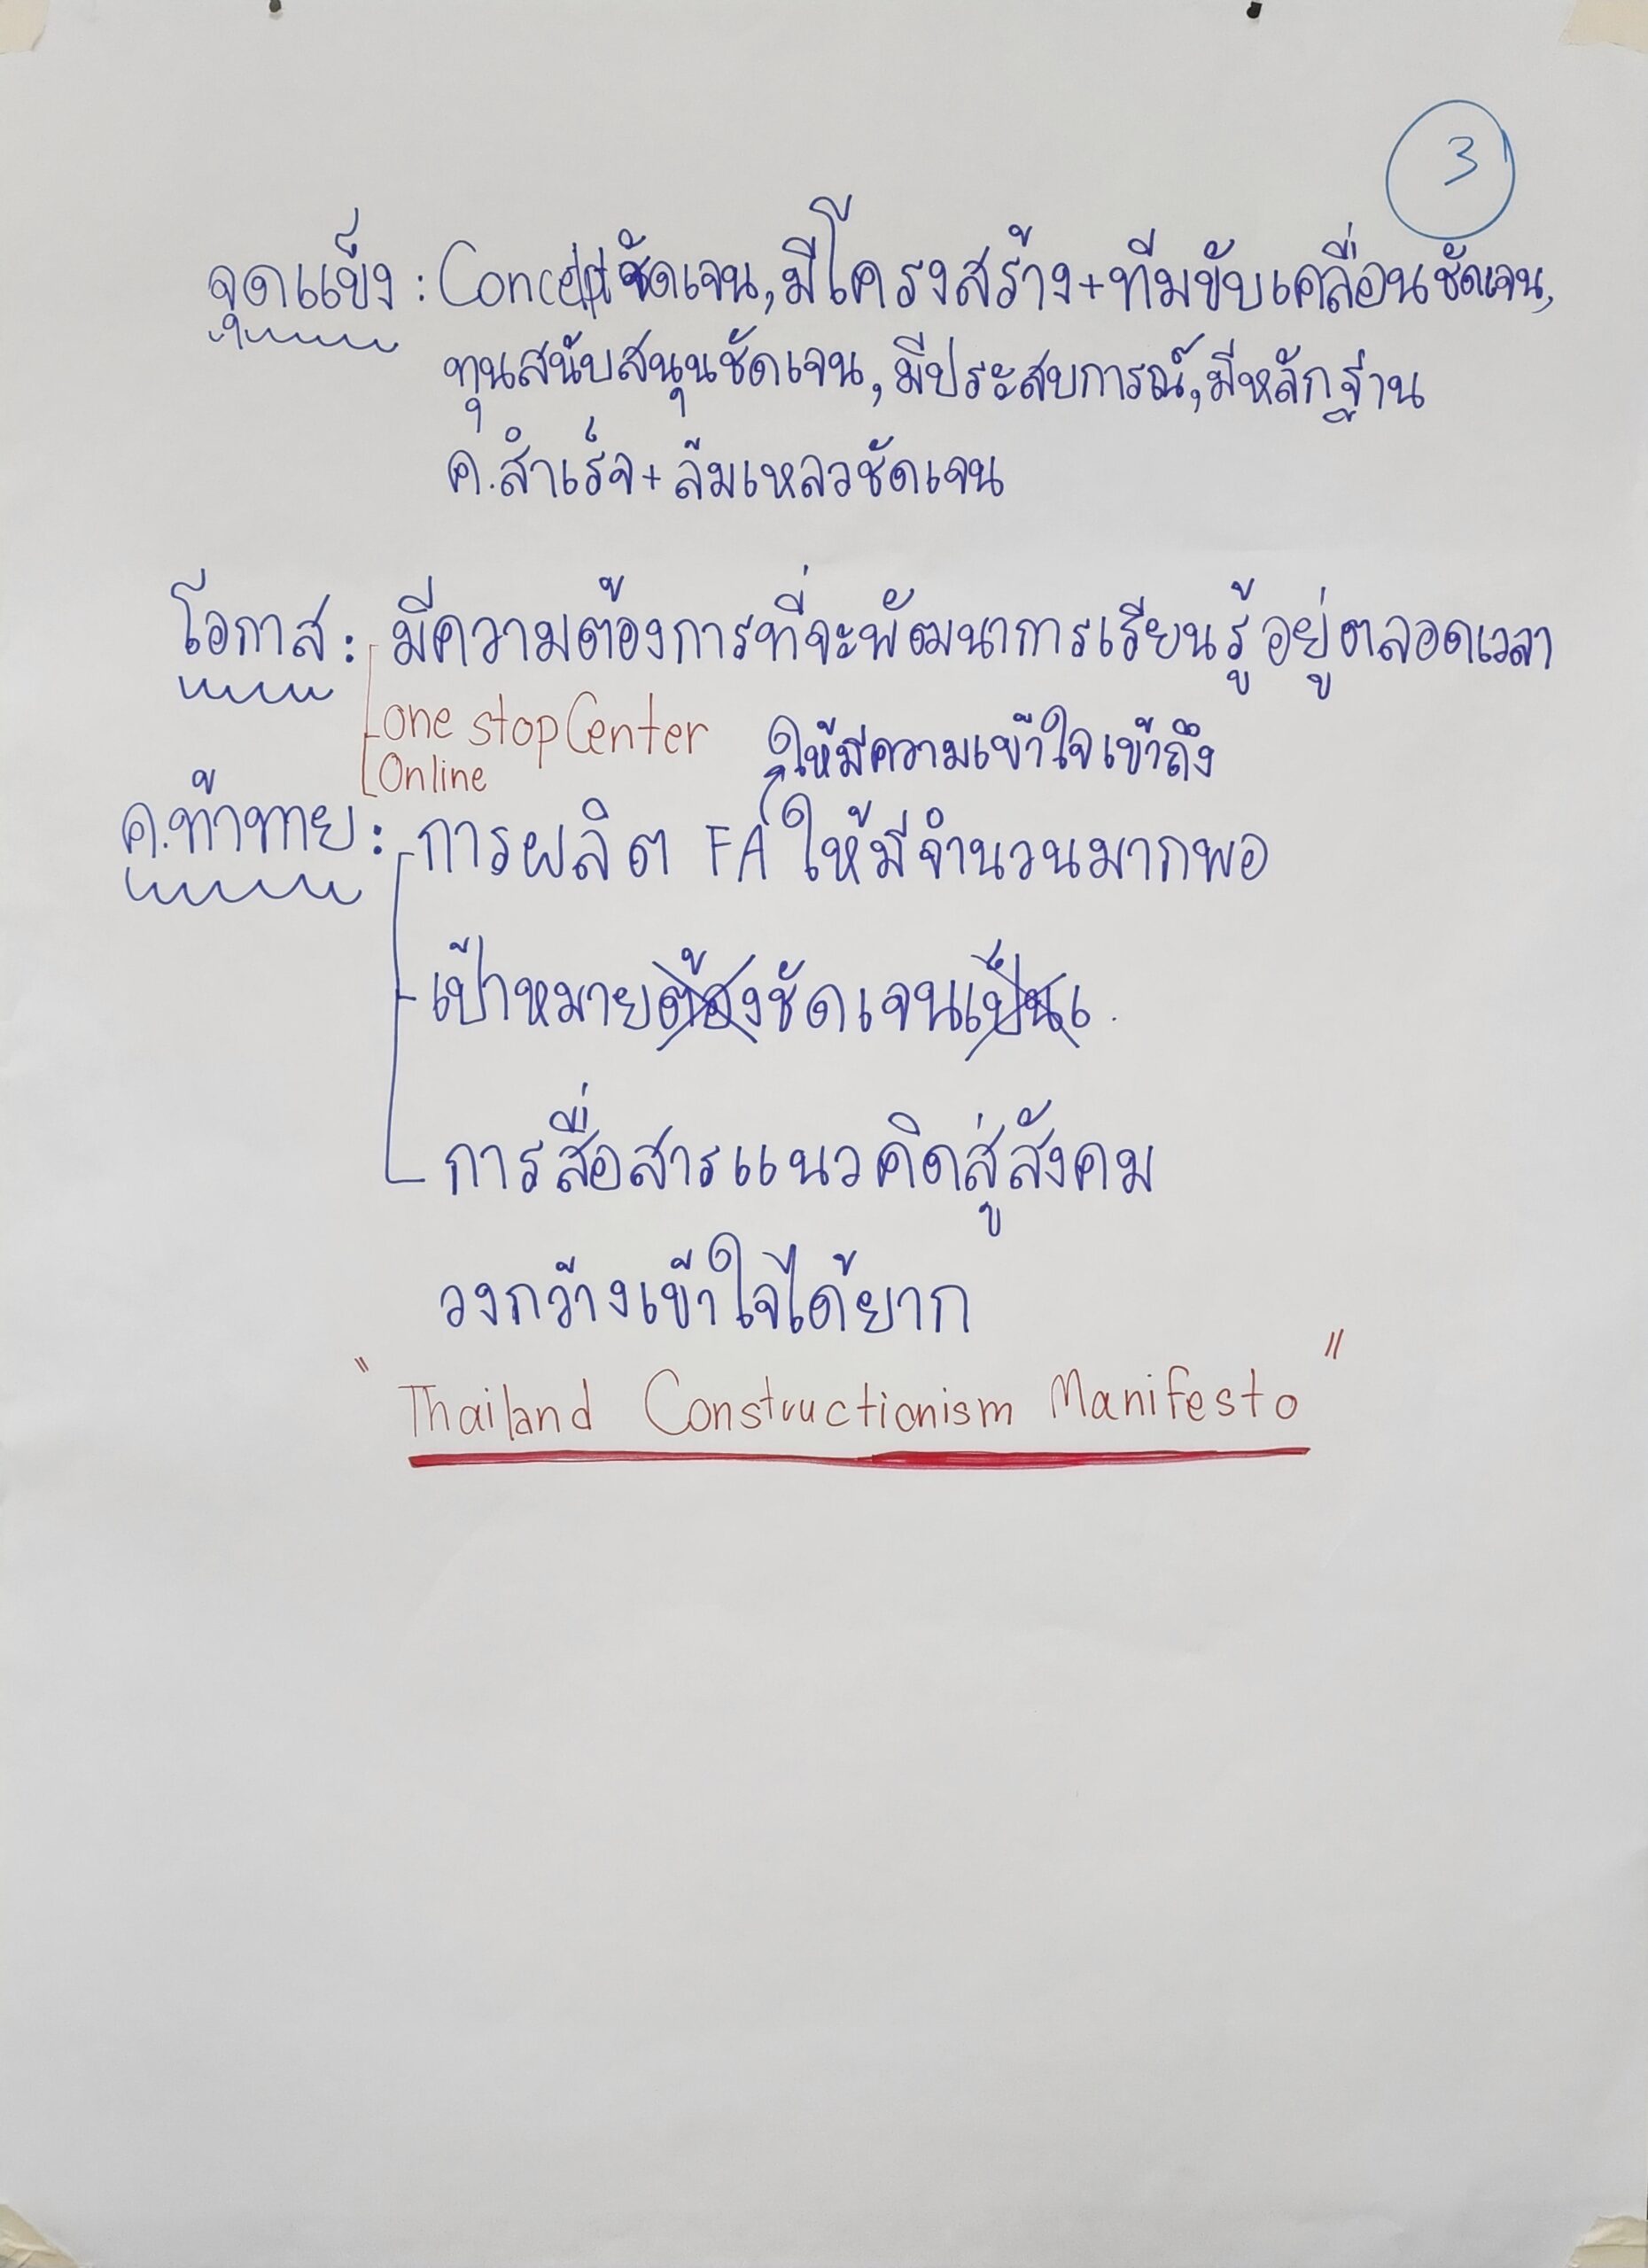 3
จุดแข็ง : Concept ชัดเจน, มีโครงสร้าง+ทีมขับเคลื่อนชัดเจน,
ทุนสนับสนุนชัดเจน, มีประสบการณ์, มีหลักฐาน
ค.สำเร็จ + ล้มเหลวชัดเจน
โอกาส : มีความต้องการที่จะพัฒนาการเรียนรู้อยู่ตลอดเวลา
one stop Center
Online
ให้มีความเข้าใจเข้าถึง
ค.ท้าทาย : การผลิต FA ให้มีจำนวนมากพอ
เป้าหมายชัดเจน
การสื่อสารแนวคิดสู่สังคม
วงกว้างเข้าใจได้ยาก
" Thailand Constructionism Manifesto "